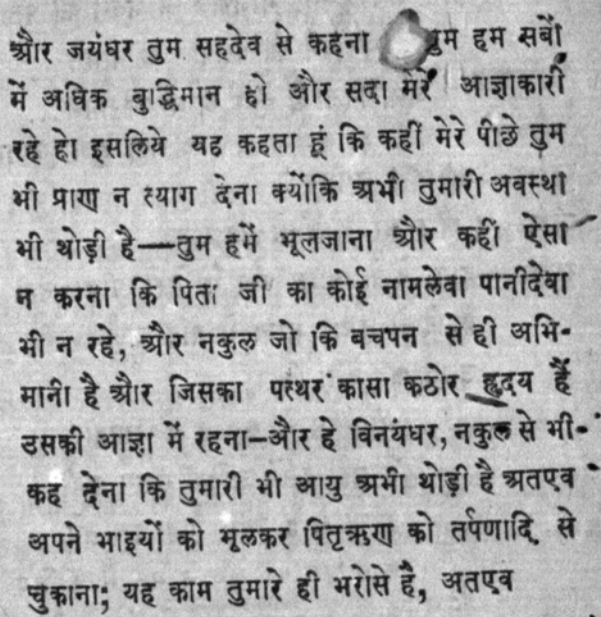 और जयंधर तुम सहदेव से कहना तुम हम सबों
में अधिक बुद्धिमान हो और सदा मेरे आज्ञाकारी
रहे हो इसलिये यह कहता हूं कि कहीं मेरे पीछे तुम
भी प्राण न त्याग देना क्योंकि अभी तुमारी अवस्था
भी थोड़ी है—तुम हमें भूलजाना और कहीं ऐसा
न करना कि पिता जी का कोई नामलेवा पानीदेवा
भी न रहे, और नकुल जो कि बचपन से ही अभि-
मानी है और जिसका पत्थर कासा कठोर हृदय हैं
उसकी आज्ञा में रहना—और हे विनयंधर, नकुल से भी
कह देना कि तुमारी भी आयु अभी थोड़ी है अतएव
अपने भाइयों को भूलकर पितृऋण को तर्पणादि से
चुकाना; यह काम तुमारे ही भरोसे है, अतएव